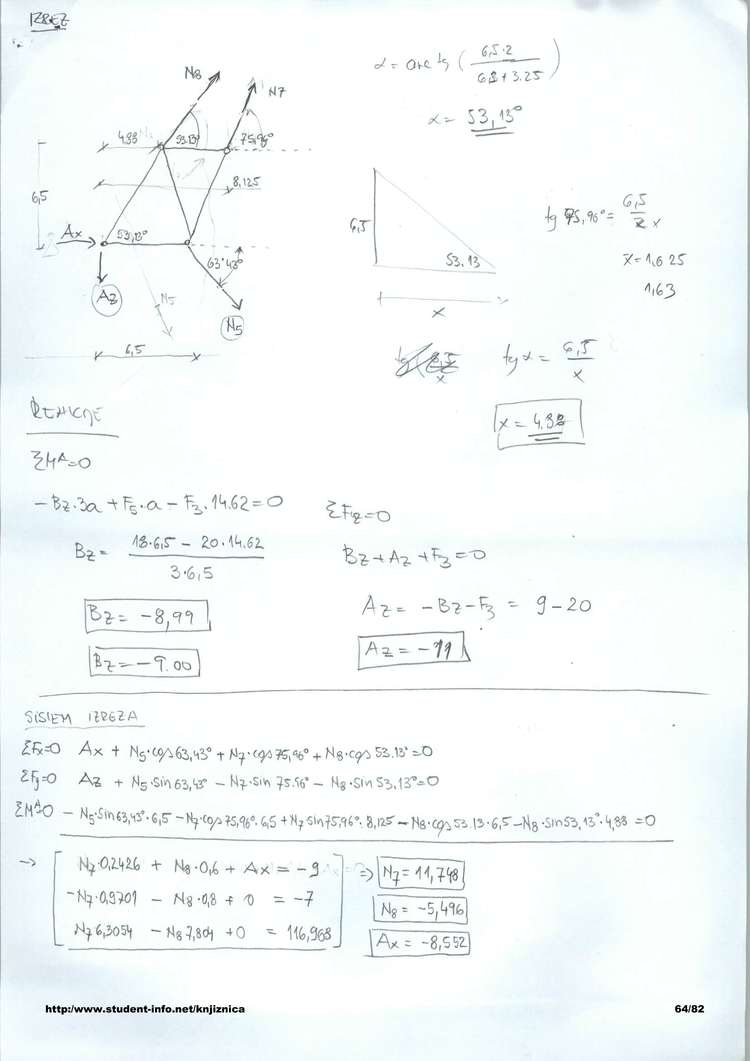 IZREZ
N8
N7
4,88
53.13°
75,96°
8,125
6,5
Ax
53,13°
63.43°
Az
N5
N5
6,5
α = arc tg ( 6,5·2 / 6,5+3.25 )
α = 53,13°
6,5
53.13
x
tg 75,96° = 6,5 / x
x = 1,625
1,63
tg α = 6,5 / x
x = 4.88
REAKCIJE
ΣM^A=0
-Bz·3a + F5·a - F3·14.62=0
Bz = 18·6,5 - 20·14.62 / 3·6,5
Bz = -8,99
Bz = -9.00
ΣFz=0
Bz + Az + F3 = 0
Az = -Bz - F3 = 9-20
Az = -11
SISTEM IZREZA
ΣFx=0 Ax + N5·cos 63,43° + N7·cos 75,96° + N8·cos 53.13°=0
ΣFy=0 Az + N5·sin 63,43° - N7·sin 75.96° - N8·sin 53,13°=0
ΣM^A=0 - N5·sin 63,43°·6,5 - N7·cos 75,96°·6,5 + N7 sin 75,96°·8,125 - N8·cos 53.13·6,5 - N8·sin 53,13°·4,88 = 0
→ N7·0,2426 + N8·0,6 + Ax = -9 ⇒ N7 = 11,748
-N7·0,9701 - N8·0,8 + 0 = -7 N8 = -5,496
N7 6,3054 - N8 7,804 + 0 = 116,968 Ax = -8,552
http:/www.student-info.net/knjiznica 64/82